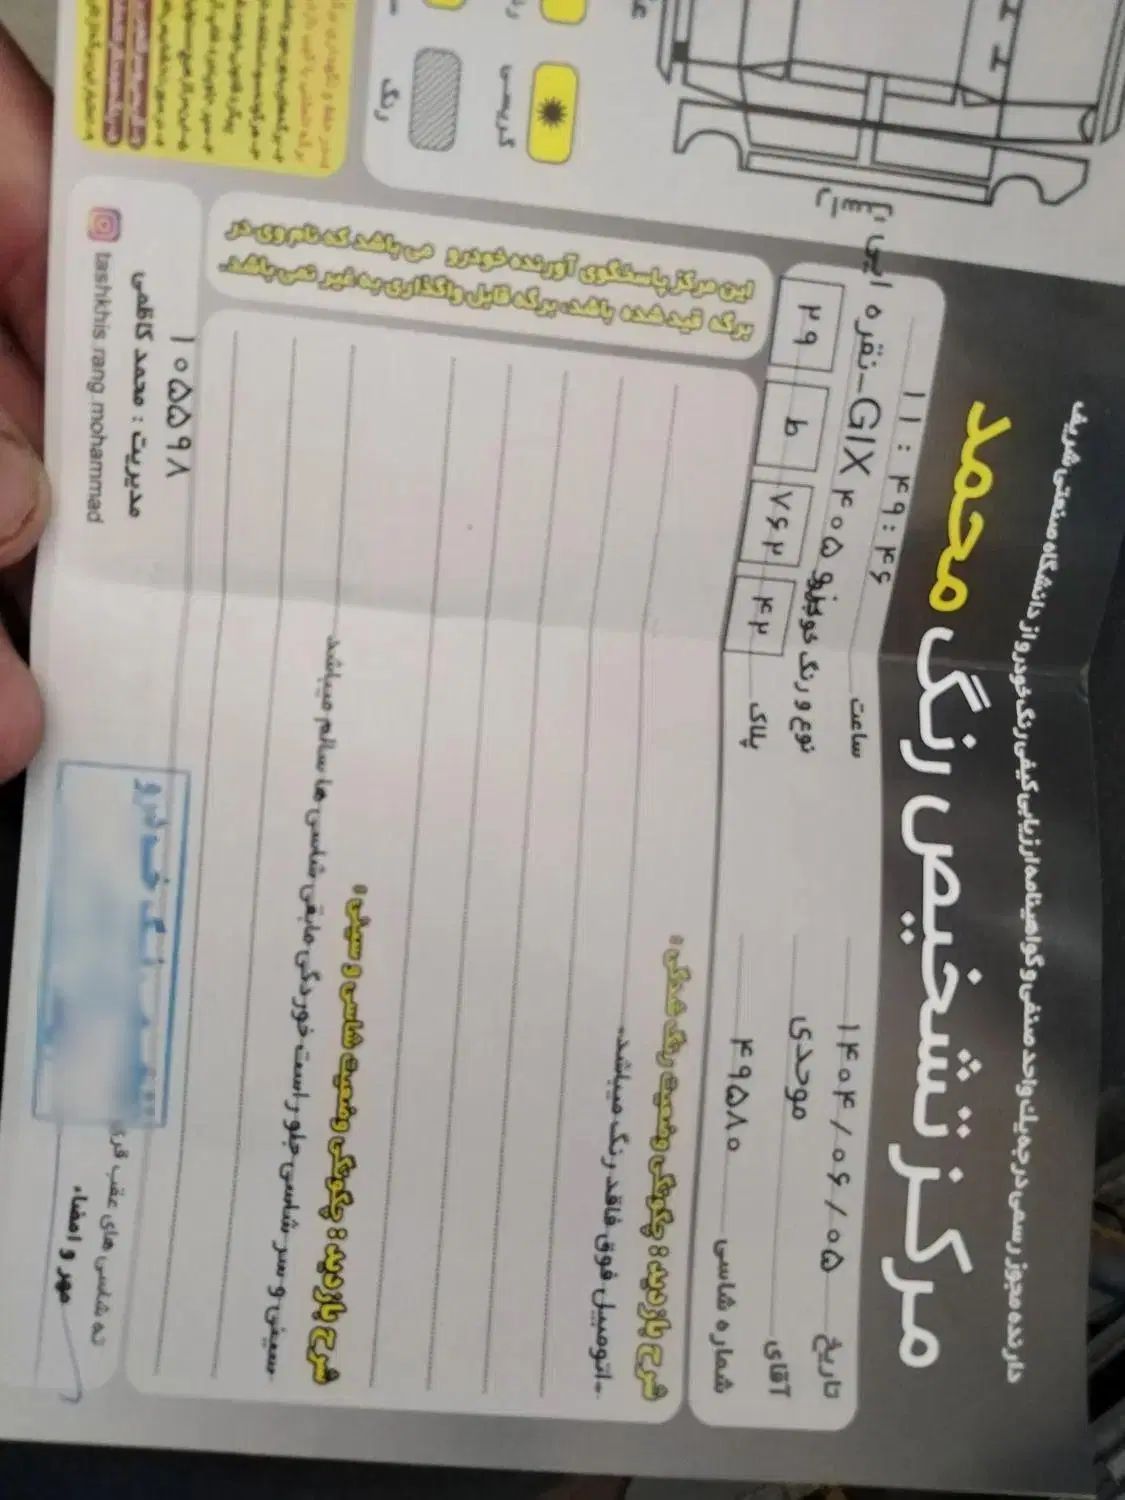 دارنده مجوز رسمی درجه یک واحد صنفی و گواهینامه ارزیابی کیفی رنگ خودرو از دانشگاه صنعتی شریف
مرکز تشخیص رنگ محمد
تاریخ ۱۴۰۴/۰۶/۰۵
ساعت ۱۱:۴۹:۴۶
آقای موحدی
نوع و رنگ خودرو پژو ۴۰۵ GlX-نقره ایی
شماره شاسی ۴۹۵۸۰
پلاک ۴۲ ۷۶۲ ط ۲۹
شرح بازدید: چگونگی وضعیت رنگ شدگی:
-اتومبیل فوق فاقد رنگ میباشد.
شرح بازدید: چگونگی وضعیت شاسی و سینی:
سینی و سر شاسی جلو راست خوردگی مابقی شاسی ها سالم میباشد.
این مرکز پاسخگوی آورنده خودرو می باشد که نام وی در
برگه قید شده باشد، برگه قابل واگذاری به غیر نمی باشد.
ته شاسی های عقب
مهر و امضاء
۱۰۵۵۹۸
مدیریت: محمد کاظمی
tashkhis rang.mohammad
رنگ